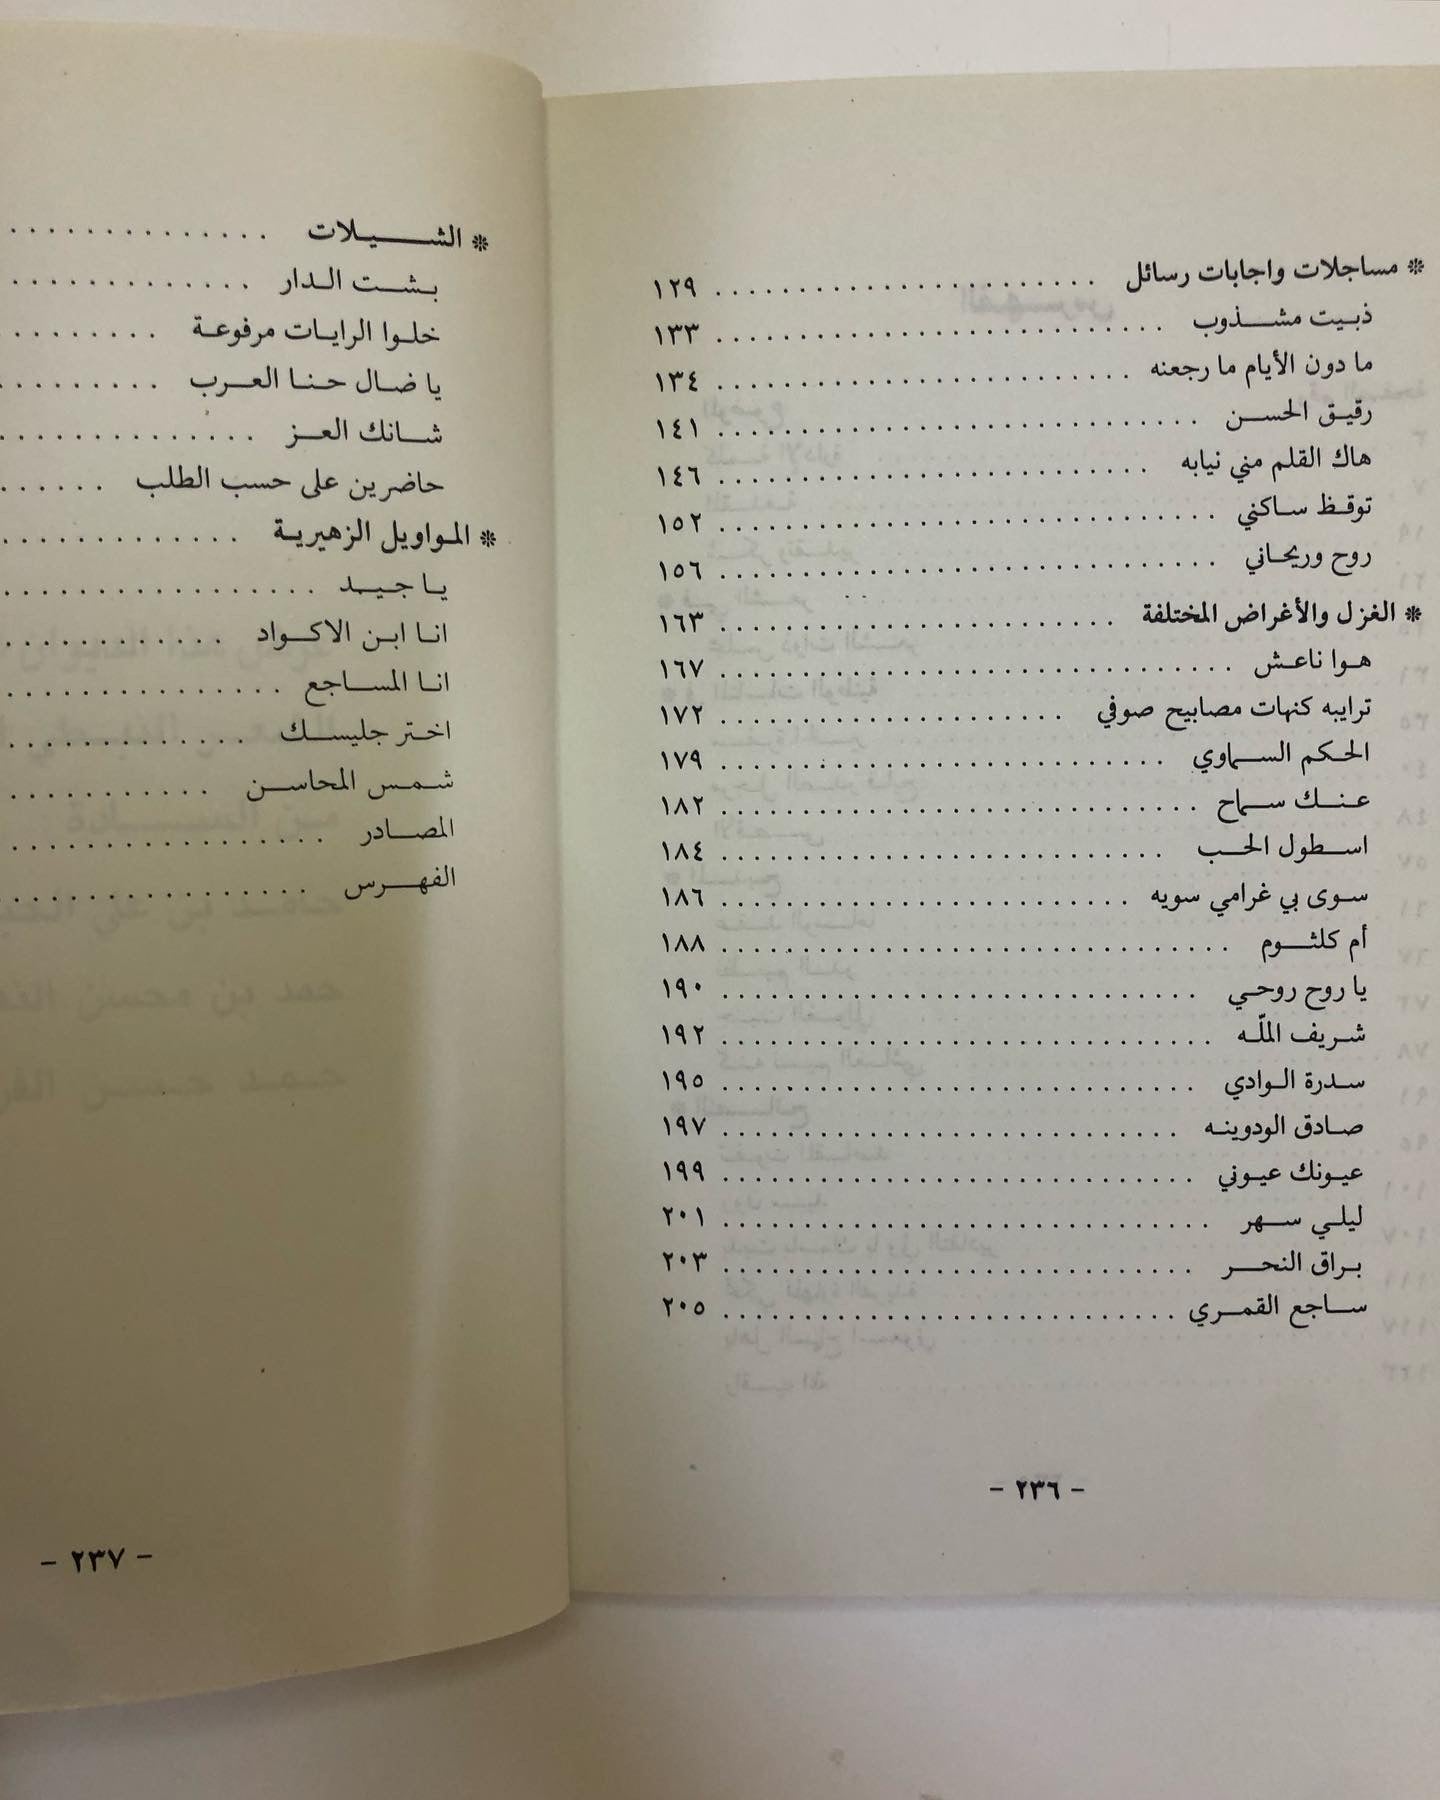 * مساجلات واجابات رسائل . . . . . . . . . . ١٢٩
ذبيت مشذوب . . . . . . . . . . ١٣٣
ما دون الأيام ما رجعنه . . . . . . . . . . ١٣٤
رقيق الحسن . . . . . . . . . . ١٤١
هاك القلم مني نيابه . . . . . . . . . . ١٤٦
توقظ ساكني . . . . . . . . . . ١٥٢
روح وريحاني . . . . . . . . . . ١٥٦
* الغزل والأغراض المختلفة . . . . . . . . . . ١٦٣
هوا ناعش . . . . . . . . . . ١٦٧
ترايبه كنهات مصابيح صوفي . . . . . . . . . . ١٧٢
الحكم السماوي . . . . . . . . . . ١٧٩
عنك سماح . . . . . . . . . . ١٨٢
اسطول الحب . . . . . . . . . . ١٨٤
سوى بي غرامي سويه . . . . . . . . . . ١٨٦
أم كلثوم . . . . . . . . . . ١٨٨
يا روح روحي . . . . . . . . . . ١٩٠
شريف الملّه . . . . . . . . . . ١٩٢
سدرة الوادي . . . . . . . . . . ١٩٥
صادق الودوينه . . . . . . . . . . ١٩٧
عيونك عيوني . . . . . . . . . . ١٩٩
ليلي سهر . . . . . . . . . . ٢٠١
براق النحر . . . . . . . . . . ٢٠٣
ساجع القمري . . . . . . . . . . ٢٠٥
- ٢٣٦ -
* الشيلات . . . . . . . . . .
بشت الدار . . . . . . . . . .
خلوا الرايات مرفوعة . . . . . . . . . .
يا ضال حنا العرب . . . . . . . . . .
شانك العز . . . . . . . . . .
حاضرين على حسب الطلب . . . . . .
* المواويل الزهيرية . . . . . . . . . .
يا جيد . . . . . . . . . .
انا ابن الاكواد . . . . . . . . . .
انا المساجع . . . . . . . . . .
اختر جليسك . . . . . . . . . .
شمس المحاسن . . . . . . . . . .
المصادر . . . . . . . . . .
الفهرس . . . . . . . . . .
- ٢٣٧ -